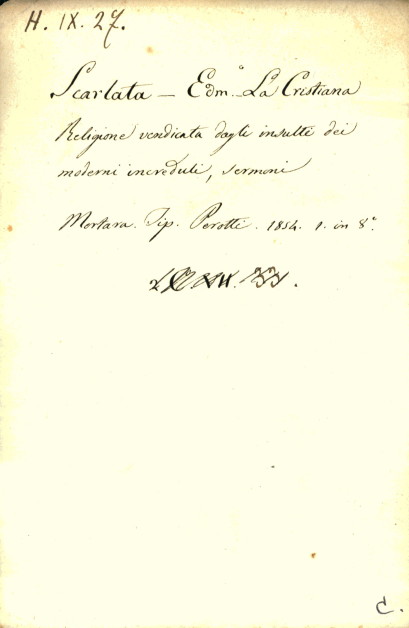 H. IX. 27.
Scarlata — Edm.º La Cristiana
Religione vendicata dagli insulti dei
moderni increduli, sermoni
Mortara. Tip. Perotti. 1854. 1. in 8º.
C.